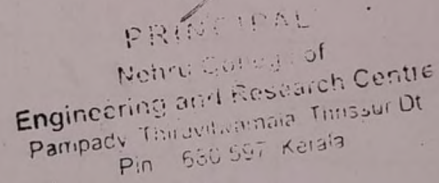 PRINCIPAL
Nehru College of
Engineering and Research Centre
Pampady Thiruvilwamala Thrissur Dt
Pin 680 597 Kerala